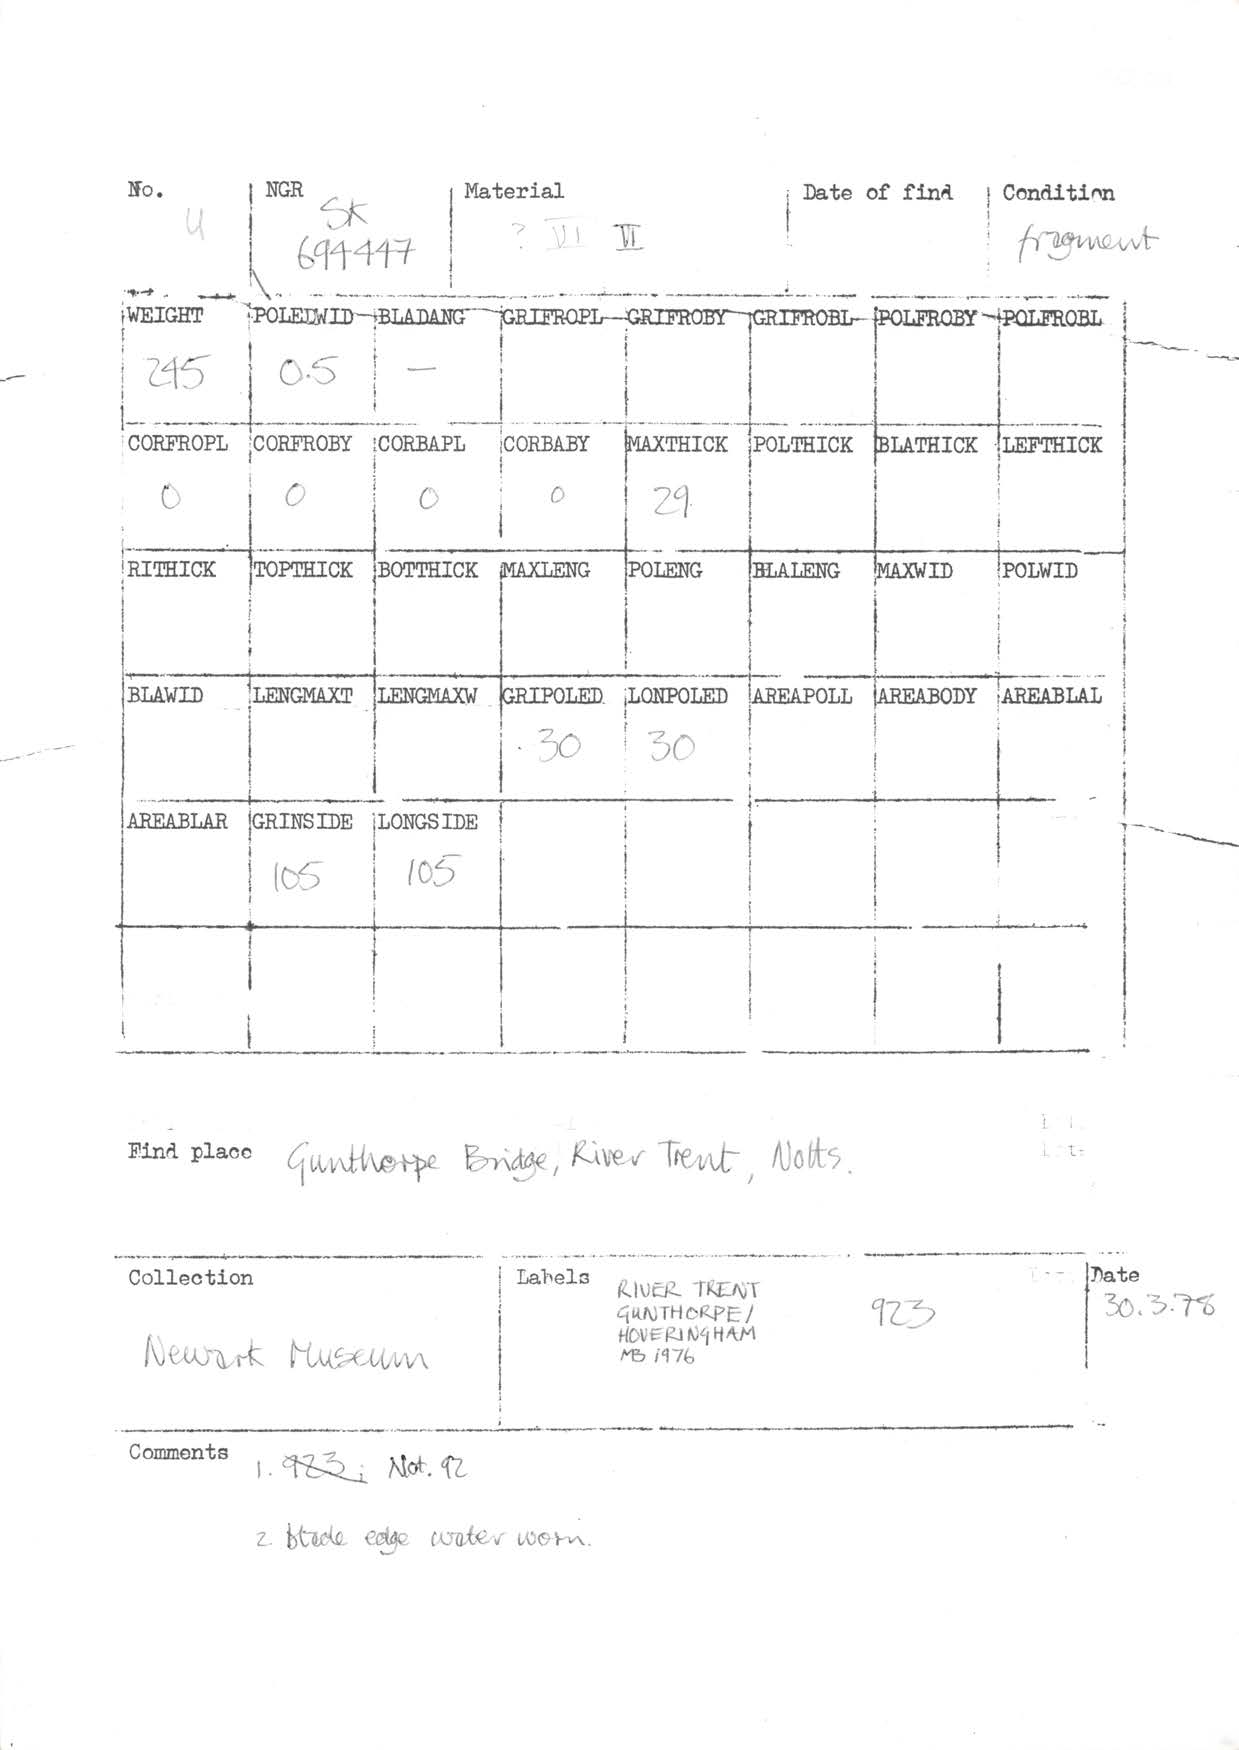 No. NGR Material Date of find Condition
4 SK ? VI VI fragment
694447
WEIGHT POLEDWID BLADANG GRIFROPL GRIFROBY GRIFROBL POLFROBY POLFROBL
245 0.5 —
CORFROPL CORFROBY CORBAPL CORBABY MAXTHICK POLTHICK BLATHICK LEFTHICK
0 0 0 0 29
RITHICK TOPTHICK BOTTHICK MAXLENG POLENG BLALENG MAXWID POLWID
BLAWID LENGMAXT LENGMAXW GRIPOLED LONPOLED AREAPOLL AREABODY AREABLAL
30 30
AREABLAR GRINSIDE LONGSIDE
105 105
Find place Gunthorpe Bridge, River Trent, Notts.
Collection Labels Date
RIVER TRENT 923 30.3.78
GUNTHORPE/
HOVERINGHAM
MB 1976
Newark Museum
Comments 1. 923; Not. 92
2. Blade edge water worn.